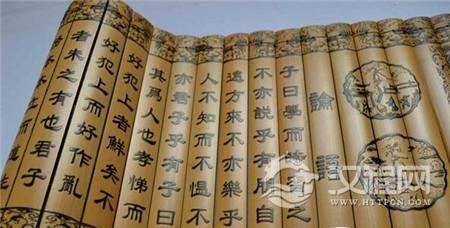 論語
子曰學而時習之
不亦說乎有朋自
遠方來不亦樂乎
人不知而不愠不
亦君子乎有子曰
其爲人也孝悌而
好犯上者鮮矣不
好犯上而好作亂
者未之有也君子
汉程网
WWW.HTTPCN.COM